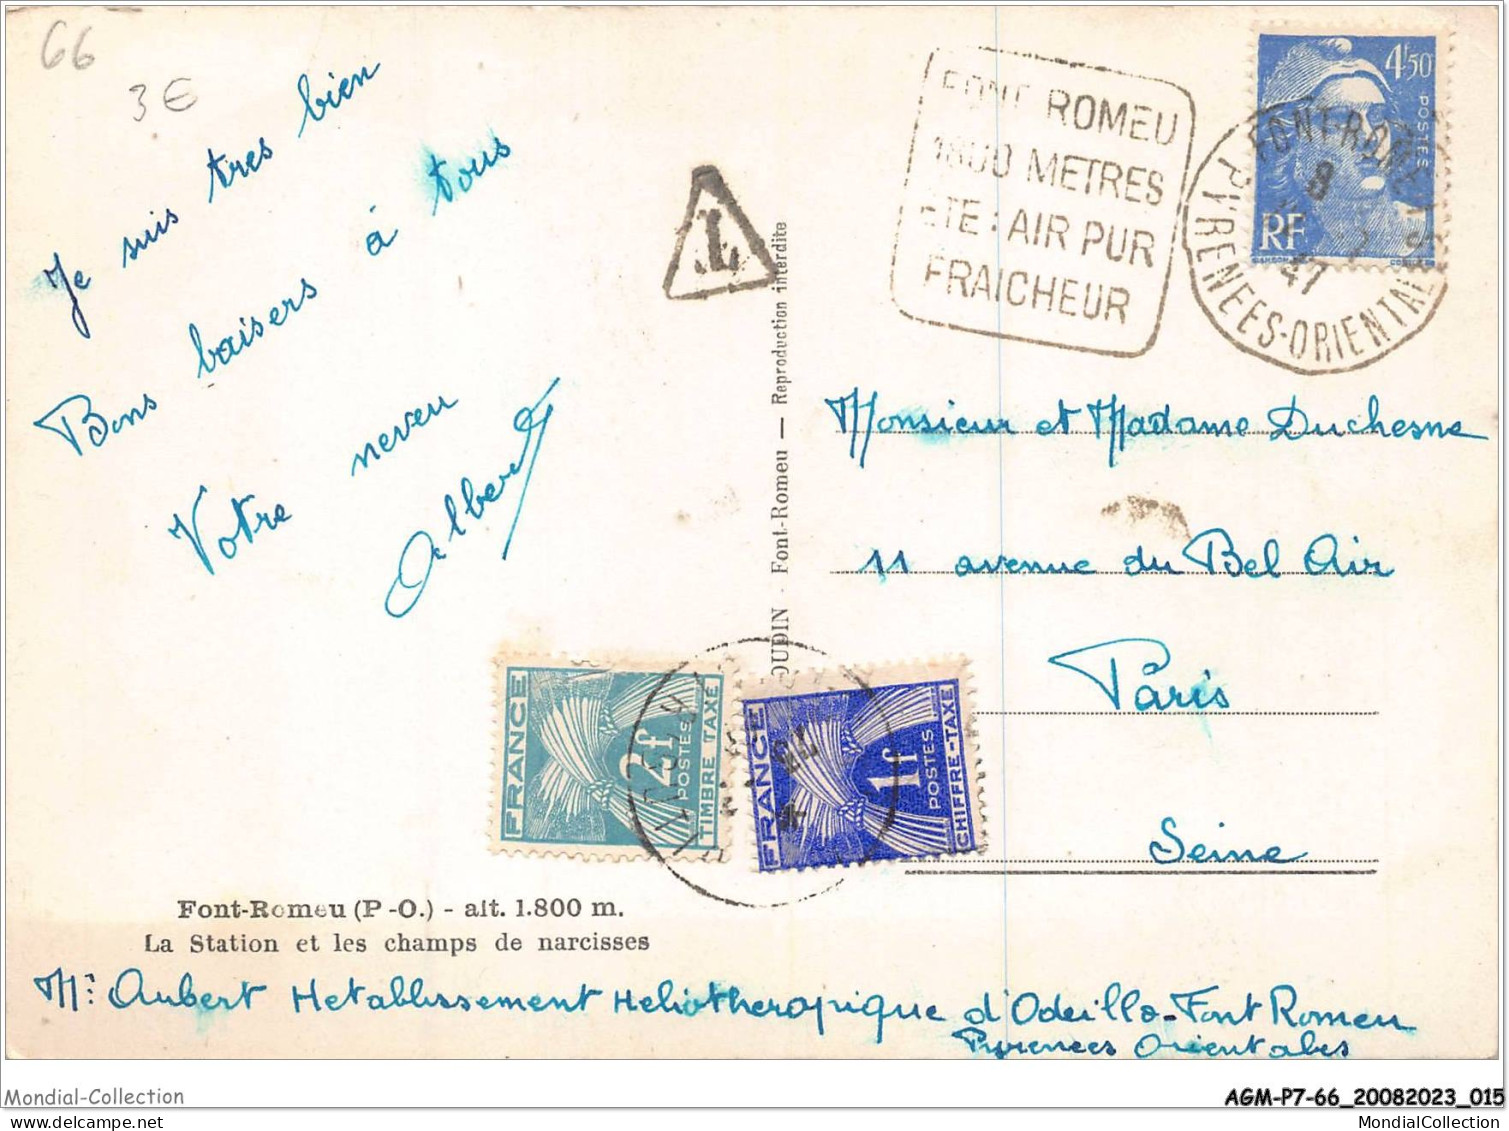 66
3€
Je suis tres bien
Bons baisers à tous
Votre neveu
Albert
T
FONT ROMEU
1800 METRES
ETE : AIR PUR
FRAICHEUR
4F50
POSTES
RF
FONT-ROMEU
8
47
PYRENEES-ORIENTALES
OUDIN - Font-Romeu — Reproduction interdite
Monsieur et Madame Duchesne
11 avenue du Bel Air
Paris
Seine
FRANCE
2f
POSTES
TIMBRE TAXE
FRANCE
1f
POSTES
CHIFFRE-TAXE
Font-Romeu (P-O.) - alt. 1.800 m.
La Station et les champs de narcisses
Mr Aubert Hetablissement Heliotherapique d'Odeillo-Font Romeu
Pyrenees Orientales
Mondial-Collection
AGM-P7-66_20082023_015
MondialCollection